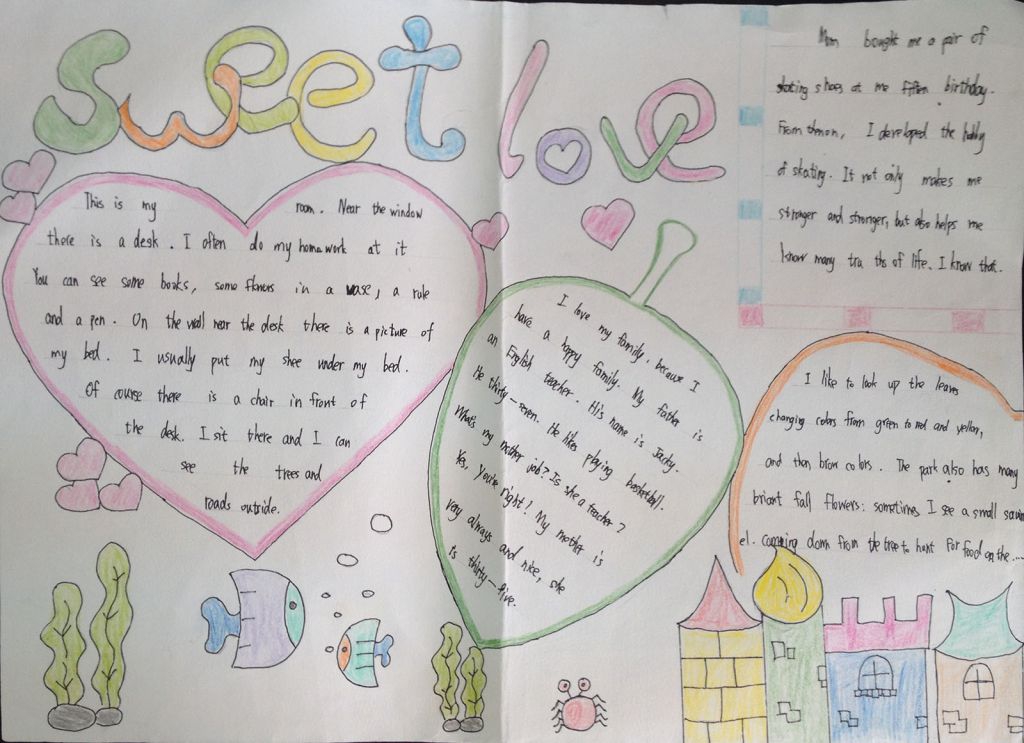 sweet love
This is my room. Near the window
there is a desk. I often do my homework at it
You can see some books, some flowers in a vase, a rule
and a pen. On the wall near the desk there is a picture of
my bed. I usually put my shee under my bed.
Of course there is a chair in front of
the desk. I sit there and I can
see the trees and
roads outside.
I love my family, because I
have a happy family. My father is
an English teacher. His name is Jacky.
He thirty-seven. He likes playing basketball.
What's my mother job? Is she a teacher?
Yes, you're right! My mother is
very always and nice, she
is thirty-five.
Mom bought me a pair of
skating shoes at me fiften birthday.
From thenon, I developed the hobby
of skating. It not only makes me
stronger and stronger, but also helps me
know many tra ths of life. I know that.
I like to look up the leaves
changing colors from green to red and yellow,
and then brow colors. The park also has many
briant fall flowers: sometimes I see a small
el. comming down from the tree to hunt for food on the....